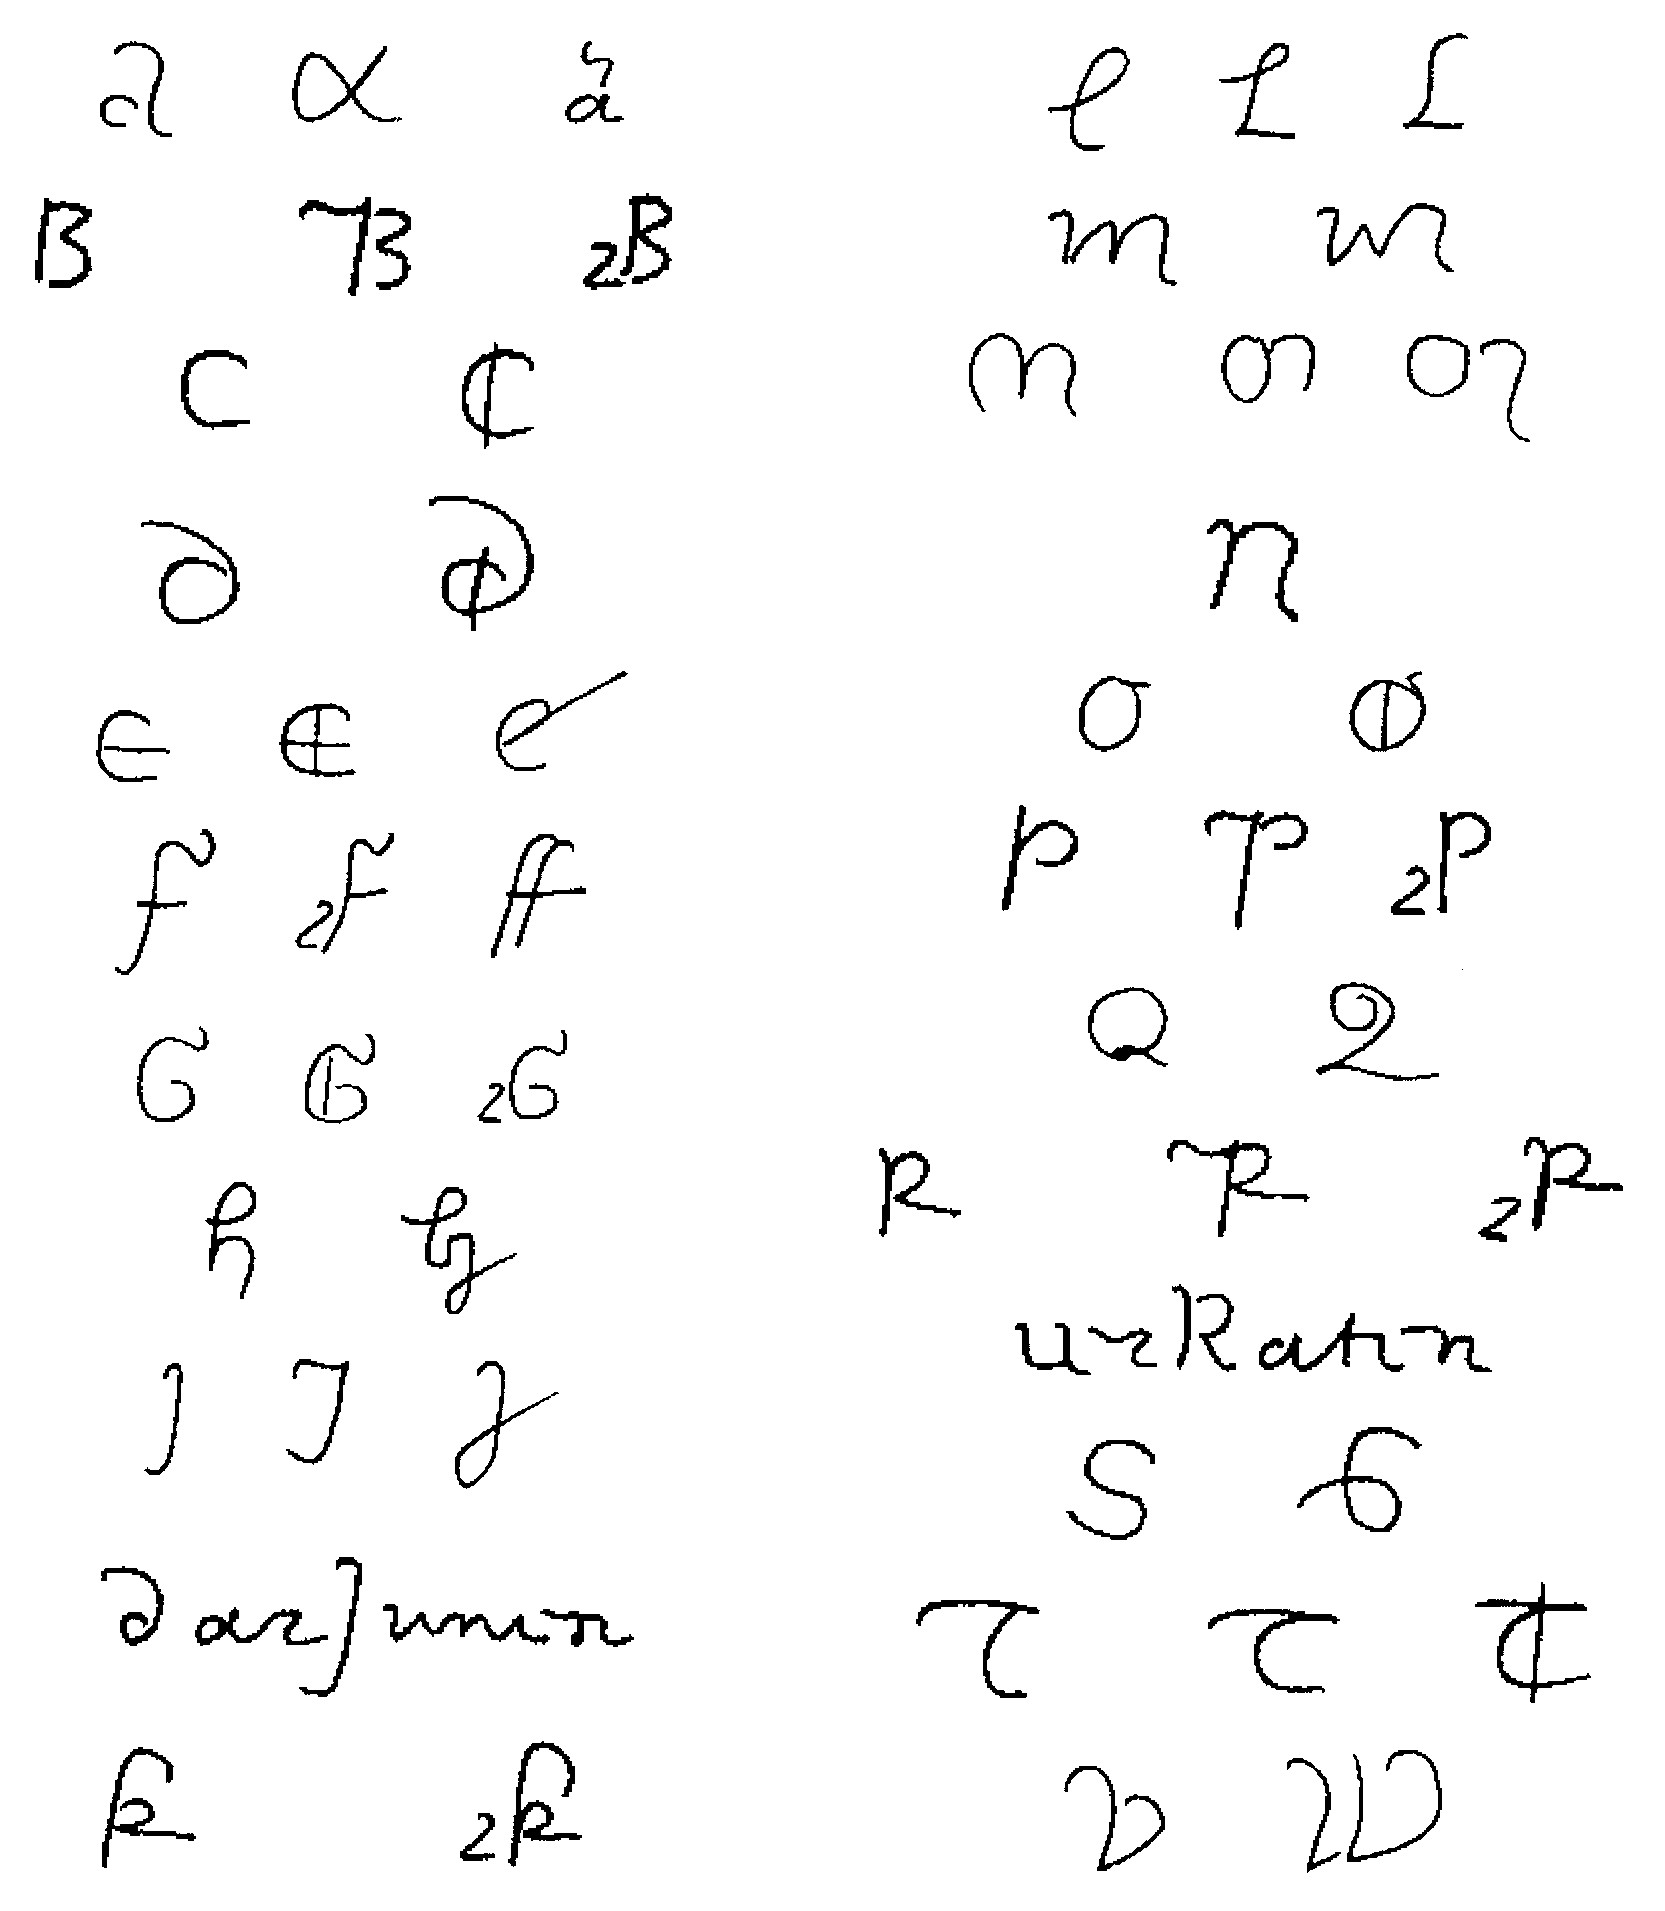 a a a
B B 2B
C C
d d
e e e
f 2f ff
G G 2G
h h
J J J
darjunen
k 2k
l L L
m m
m m m
n
o o
P P 2P
Q Q
R R 2R
urkaten
S S
T T T
v w